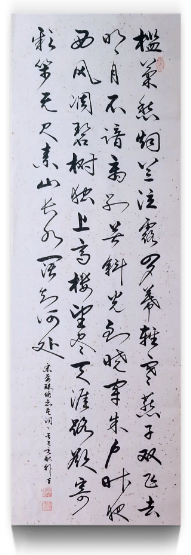 槛菊愁烟兰泣露罗幕轻寒燕子双飞去
明月不谙离别苦斜光到晓穿朱户昨夜
西风凋碧树独上高楼望尽天涯路欲寄
彩笺无尺素山长水阔知何处
宋晏殊蝶恋花词